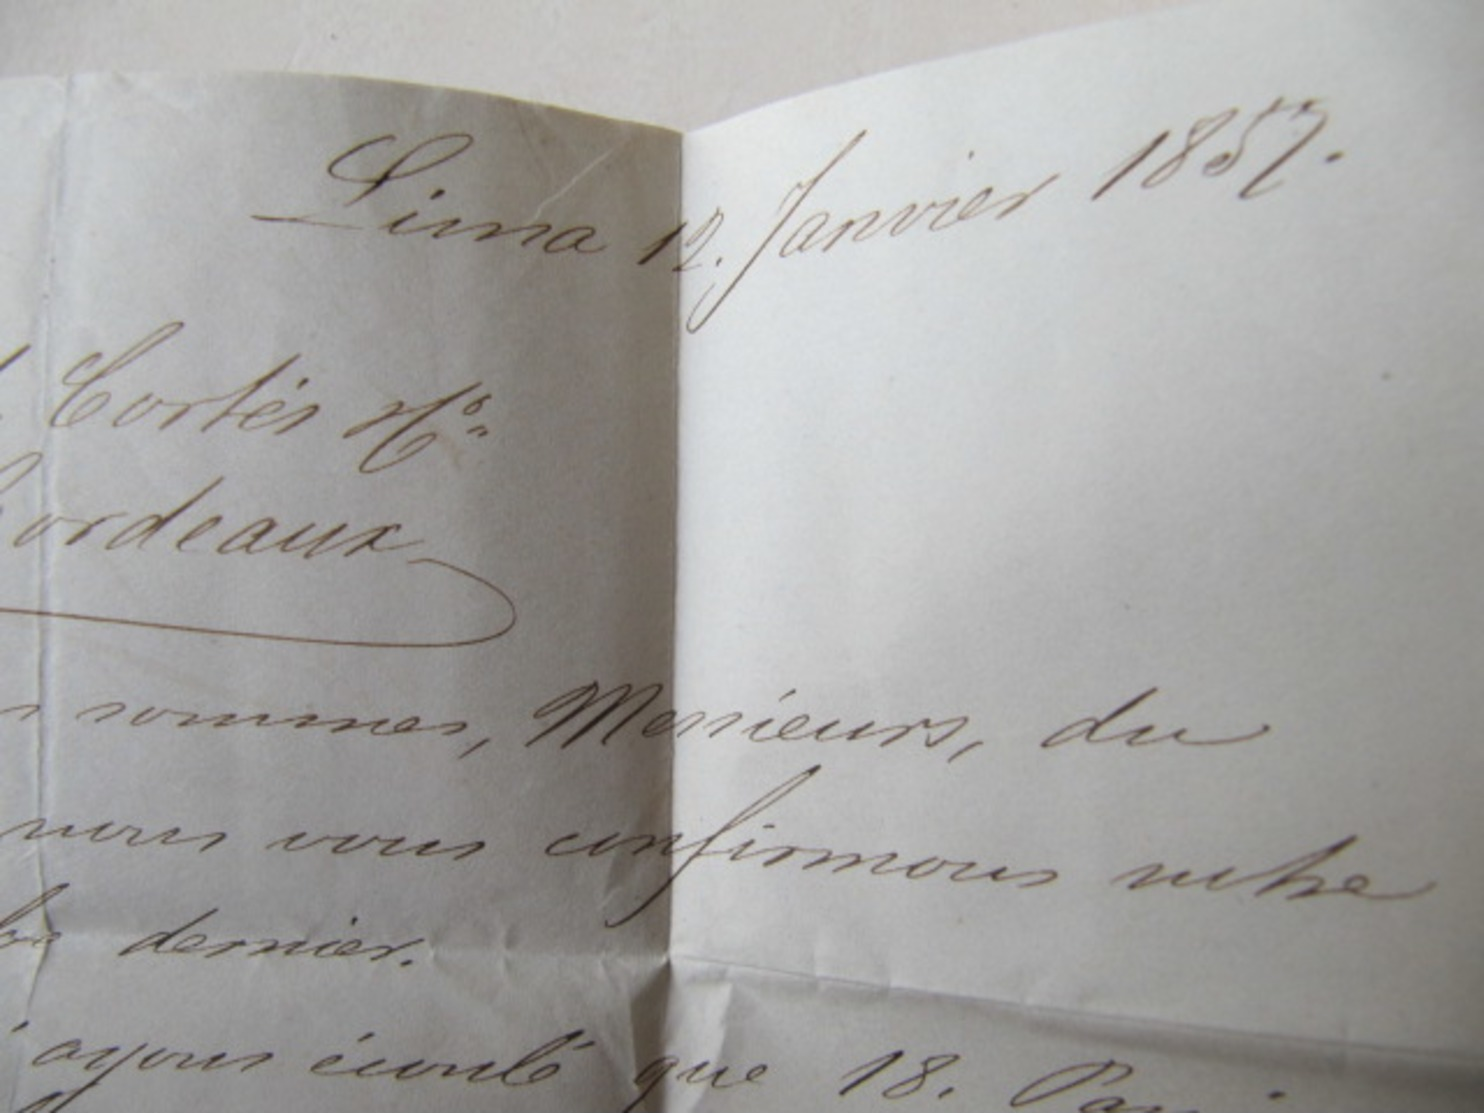 Lima 12. Janvier 1857.
Cortés Hs
Bordeaux
sommes, Messieurs, du
nous vous confirmons notre
dernier.
ayons écoulé que 18.